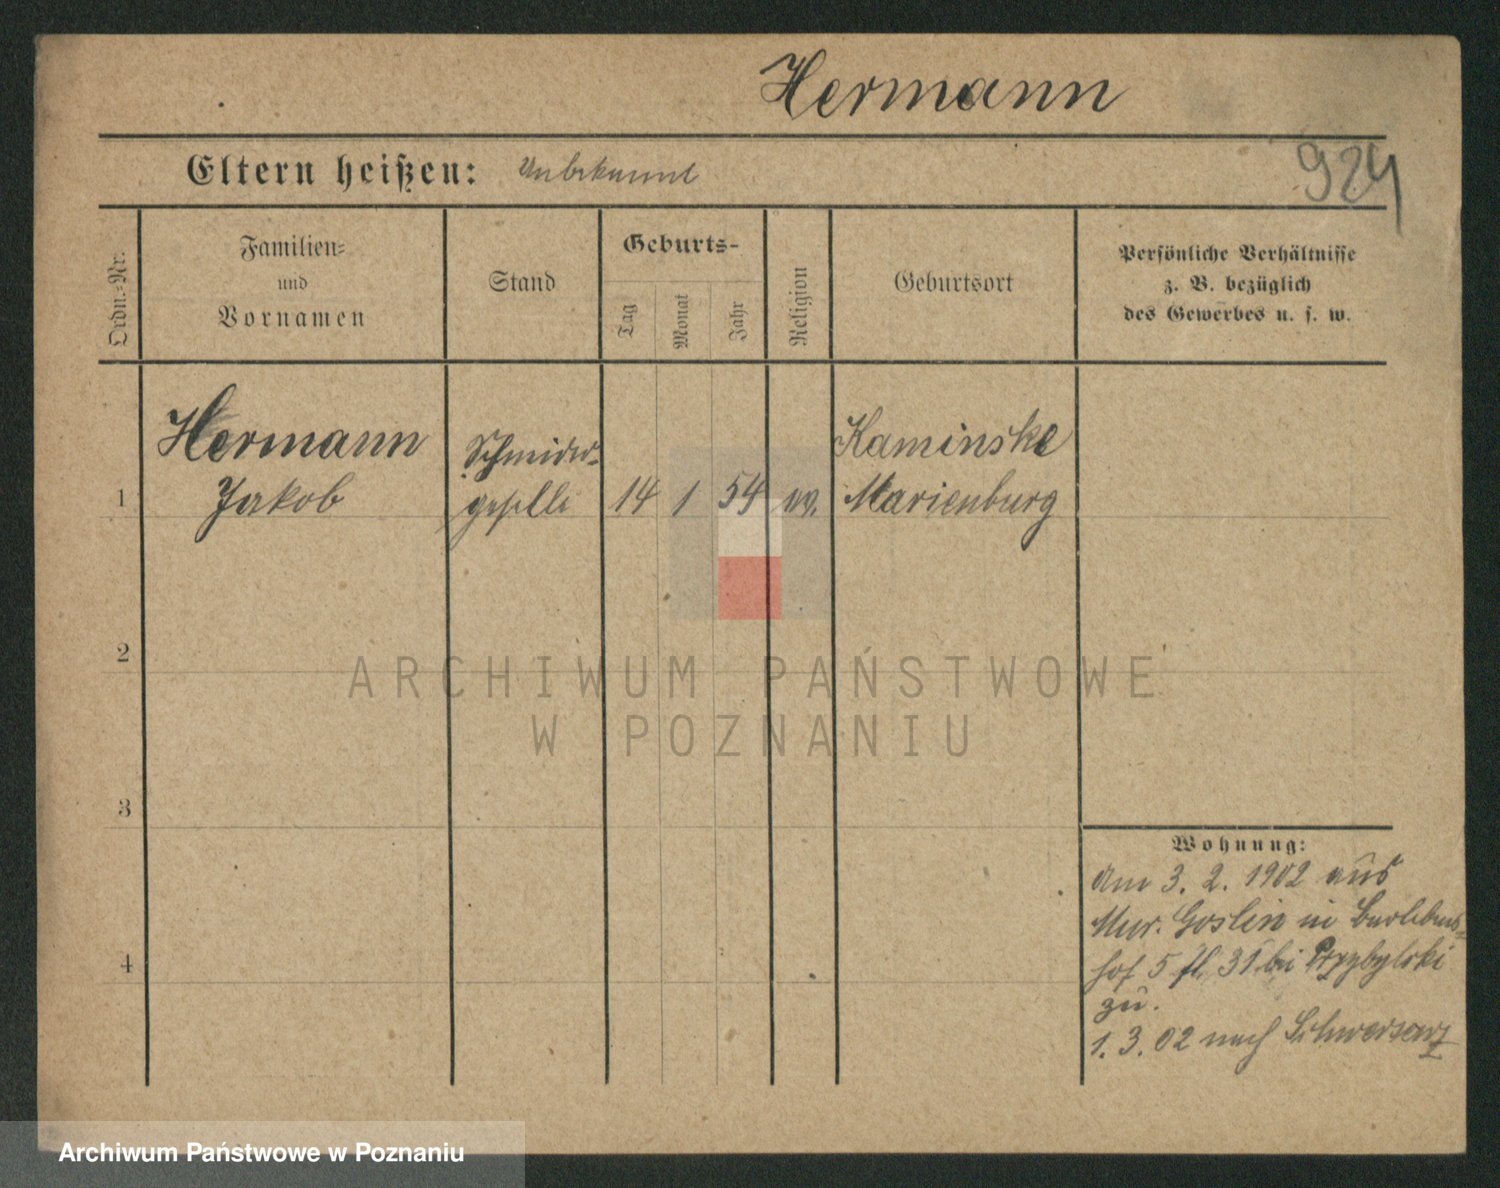 Hermann
Eltern heißen: Unbekannt
924
Ordn.-Nr.
Familien-
und
Vornamen
Stand
Geburts-
Tag
Monat
Jahr
Religion
Geburtsort
Persönliche Verhältnisse
z. B. bezüglich
des Gewerbes u. s. w.
Hermann
Jakob
Schneider-
geselle
1
14
1
54
ev.
Kaminske
Marienburg
2
3
4
Wohnung:
am 3. 2. 1902 aus
Mur. Goslin in
hof 5 fl. 31 bei Przybylski
zu.
1. 3. 02 nach Schwersenz
ARCHIWUM PAŃSTWOWE
W POZNANIU
Archiwum Państwowe w Poznaniu